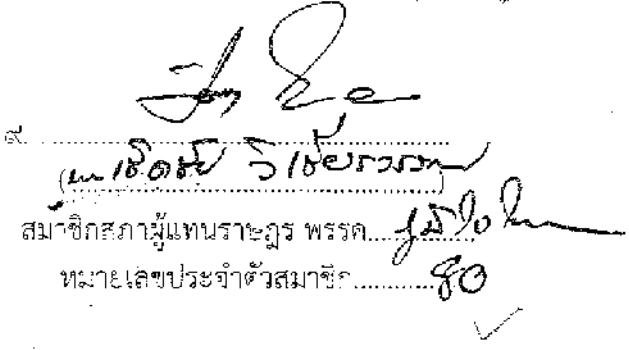 ๙.
(นายเชิดชัย วิเชียรวรรณ)
สมาชิกสภาผู้แทนราษฎร พรรค ภูมิใจไทย
หมายเลขประจำตัวสมาชิก 80